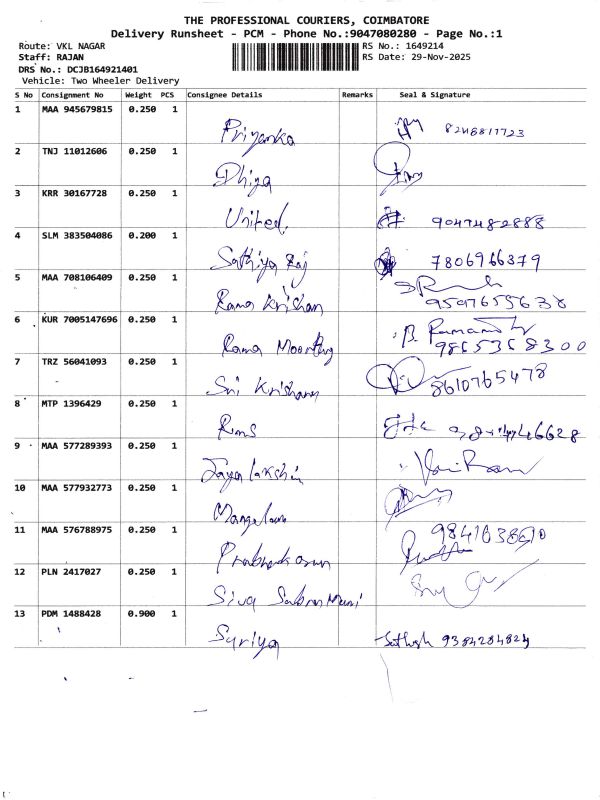 THE PROFESSIONAL COURIERS, COIMBATORE
Delivery Runsheet - PCM - Phone No.:9047080280 - Page No.:1
Route: VKL NAGAR
RS No.: 1649214
Staff: RAJAN
RS Date: 29-Nov-2025
DRS No.: DCJB164921401
Vehicle: Two Wheeler Delivery
S No Consignment No Weight PCS Consignee Details Remarks Seal & Signature
1 MAA 945679815 0.250 1
Priyanka 8246817723
2 TNJ 11012606 0.250 1
Dhiya
3 KRR 30167728 0.250 1
United. 9047482888
4 SLM 383504086 0.200 1
Sathiya Raj 7806966379
5 MAA 708106409 0.250 1
Rama Krishan 9597655638
6 KUR 7005147696 0.250 1
Rama Moorthy 9865368300
7 TRZ 56041093 0.250 1
Sri Krishana 8610765478
8 MTP 1396429 0.250 1
Rms
9 MAA 577289393 0.250 1
Jayalakshin
10 MAA 577932773 0.250 1
Mangalam
11 MAA 576788975 0.250 1
Prabhakaran
12 PLN 2417027 0.250 1
Siva Subramani
13 PDM 1488428 0.900 1
Suriya Sathish 9384284824